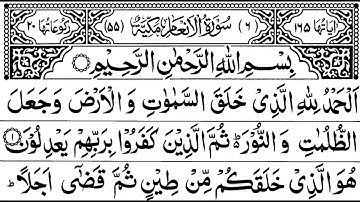 اٰيَاتُهَا ١٦٥ (٦) سُوْرَةُ الْاَنْعَامِ مَكِّيَّةٌ (٥٥) رُكُوْعَاتُهَا ٢٠
بِسْمِ اللّٰهِ الرَّحْمٰنِ الرَّحِيْمِ
اَلْحَمْدُ لِلّٰهِ الَّذِىْ خَلَقَ السَّمٰوٰتِ وَ الْاَرْضَ وَ جَعَلَ
الظُّلُمٰتِ وَ النُّوْرَ ؕ ثُمَّ الَّذِيْنَ كَفَرُوْا بِرَبِّهِمْ يَعْدِلُوْنَ ۝١
هُوَ الَّذِىْ خَلَقَكُمْ مِّنْ طِيْنٍ ثُمَّ قَضٰٓى اَجَلًا ؕ